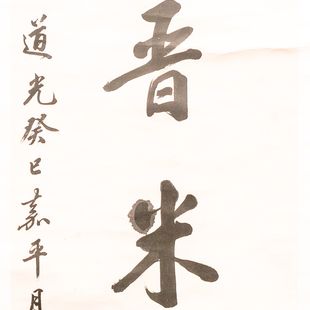 晋米
道光癸巳嘉平月